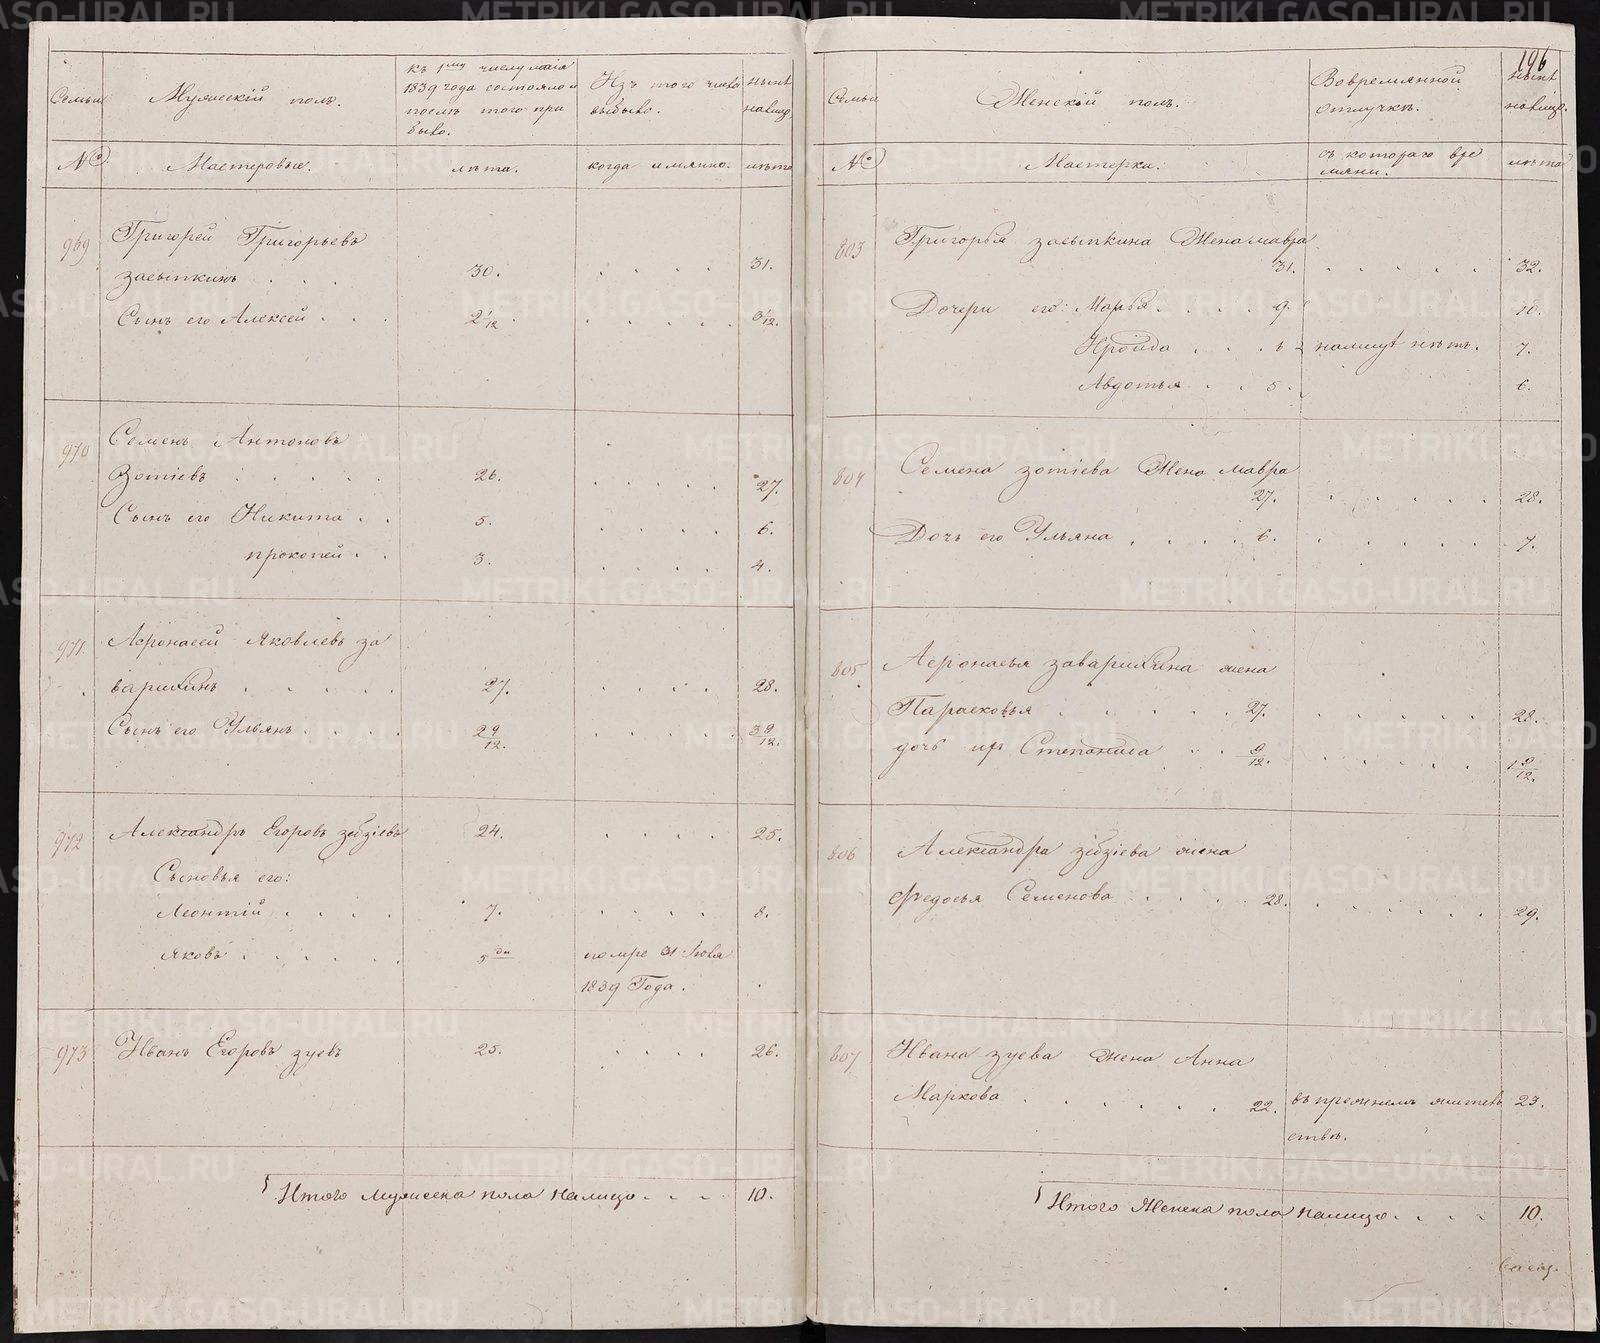 Семьи
Мужескій полъ.
къ 1му числу маія
1839 года состояло и
послѣ того при
было.
Изъ того числа
выбыло.
нынѣ
налицо.
№
Мастеровые.
лѣта.
когда имянно.
лѣта
969
Григорей Григорьевъ
засыпкинъ . . . 30. . . . . 31.
Сынъ его Алексей . . . 2 1/12 . . . . . 3 1/12.
970
Семенъ Антоновъ
Зотіевъ . . . . . 26. . . . . . 27.
Сынъ его Никита . . 5. . . . . 6.
прокопей . . 3. . . . . 4.
971.
Афонасей Яковлевъ за
варихинъ . . . . . 27. . . . . 28.
Сынъ его Ульянъ . . . . 2 9/12. . . . . . 3 9/12.
972
Александръ Егоровъ зобзіевъ 24. . . . . 25.
Сыновья его:
Леонтій . . . . 7. . . . . 8.
Яковъ . . . . . . 5 дн помре 31 Іюля
1839 Года.
973
Иванъ Егоровъ зуевъ 25. . . . . 26.
Итого Мужеска пола налицо . . . . 10.
196
Семьи
Женскій полъ.
Вовремянной
отлучкѣ.
нынѣ
налицо.
№
Мастерки.
съ котораго вре
мяни.
лѣта
803
Григорья засыпкина Жена мавра
31. . . . . . 32.
Дочери его: Марья . . . . 9. 10.
Ироида . . . 6 налицѣ нѣтъ. 7.
Авдотья . . 5. 6.
804
Семена зотіева Жена мавра
27. . . . . . 28.
Дочь его Ульяна . . . . 6. . . . . . 7.
805
Афонасья заварихина жена
Парасковья . . . . . 27. . . . . . 28.
дочь их Степанида . . 9/12. . . . . . 1 9/12.
806
Александра зобзіева жена
Федосья Семенова . . . . 28. . . . . . 29.
807
Ивана зуева жена Анна
Маркова . . . . . . 22. въ прежнемъ жительъ 23.
ствѣ.
Итого Женска пола налицо . . . . 10.
METRIKI.GASO-URAL.RU